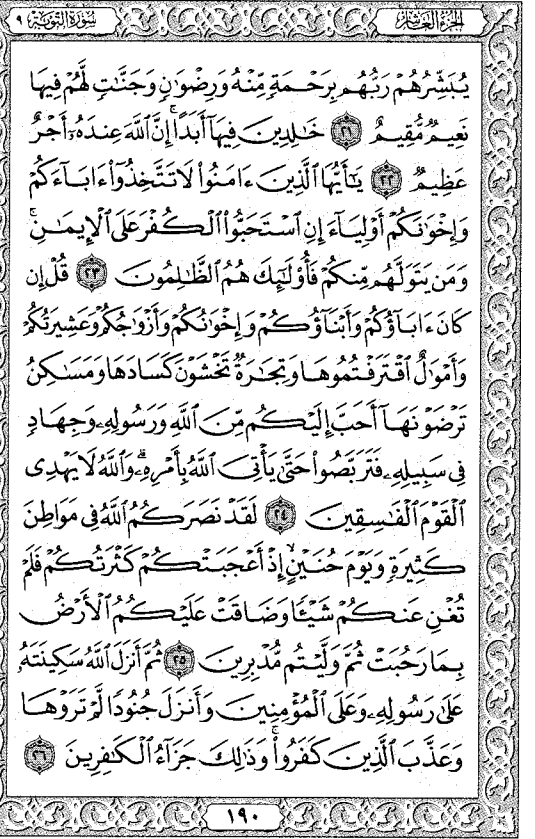 الجزء العاشر
سورة التوبة ٩
يُبَشِّرُهُمْ رَبُّهُم بِرَحْمَةٍ مِّنْهُ وَرِضْوَٰنٍ وَجَنَّٰتٍ لَّهُمْ فِيهَا
نَعِيمٌ مُّقِيمٌ ٢١ خَٰلِدِينَ فِيهَآ أَبَدًا ۚ إِنَّ ٱللَّهَ عِندَهُۥٓ أَجْرٌ
عَظِيمٌ ٢٢ يَٰٓأَيُّهَا ٱلَّذِينَ ءَامَنُوا۟ لَا تَتَّخِذُوٓا۟ ءَابَآءَكُمْ
وَإِخْوَٰنَكُمْ أَوْلِيَآءَ إِنِ ٱسْتَحَبُّوا۟ ٱلْكُفْرَ عَلَى ٱلْإِيمَٰنِ ۚ
وَمَن يَتَوَلَّهُم مِّنكُمْ فَأُو۟لَٰٓئِكَ هُمُ ٱلظَّٰلِمُونَ ٢٣ قُلْ إِن
كَانَ ءَابَآؤُكُمْ وَأَبْنَآؤُكُمْ وَإِخْوَٰنُكُمْ وَأَزْوَٰجُكُمْ وَعَشِيرَتُكُمْ
وَأَمْوَٰلٌ ٱقْتَرَفْتُمُوهَا وَتِجَٰرَةٌ تَخْشَوْنَ كَسَادَهَا وَمَسَٰكِنُ
تَرْضَوْنَهَآ أَحَبَّ إِلَيْكُم مِّنَ ٱللَّهِ وَرَسُولِهِۦ وَجِهَادٍ
فِى سَبِيلِهِۦ فَتَرَبَّصُوا۟ حَتَّىٰ يَأْتِىَ ٱللَّهُ بِأَمْرِهِۦ ۗ وَٱللَّهُ لَا يَهْدِى
ٱلْقَوْمَ ٱلْفَٰسِقِينَ ٢٤ لَقَدْ نَصَرَكُمُ ٱللَّهُ فِى مَوَاطِنَ
كَثِيرَةٍ ۙ وَيَوْمَ حُنَيْنٍ ۙ إِذْ أَعْجَبَتْكُمْ كَثْرَتُكُمْ فَلَمْ
تُغْنِ عَنكُمْ شَيْـًٔا وَضَاقَتْ عَلَيْكُمُ ٱلْأَرْضُ
بِمَا رَحُبَتْ ثُمَّ وَلَّيْتُم مُّدْبِرِينَ ٢٥ ثُمَّ أَنزَلَ ٱللَّهُ سَكِينَتَهُۥ
عَلَىٰ رَسُولِهِۦ وَعَلَى ٱلْمُؤْمِنِينَ وَأَنزَلَ جُنُودًا لَّمْ تَرَوْهَا
وَعَذَّبَ ٱلَّذِينَ كَفَرُوا۟ ۚ وَذَٰلِكَ جَزَآءُ ٱلْكَٰفِرِينَ ٢٦
١٩٠